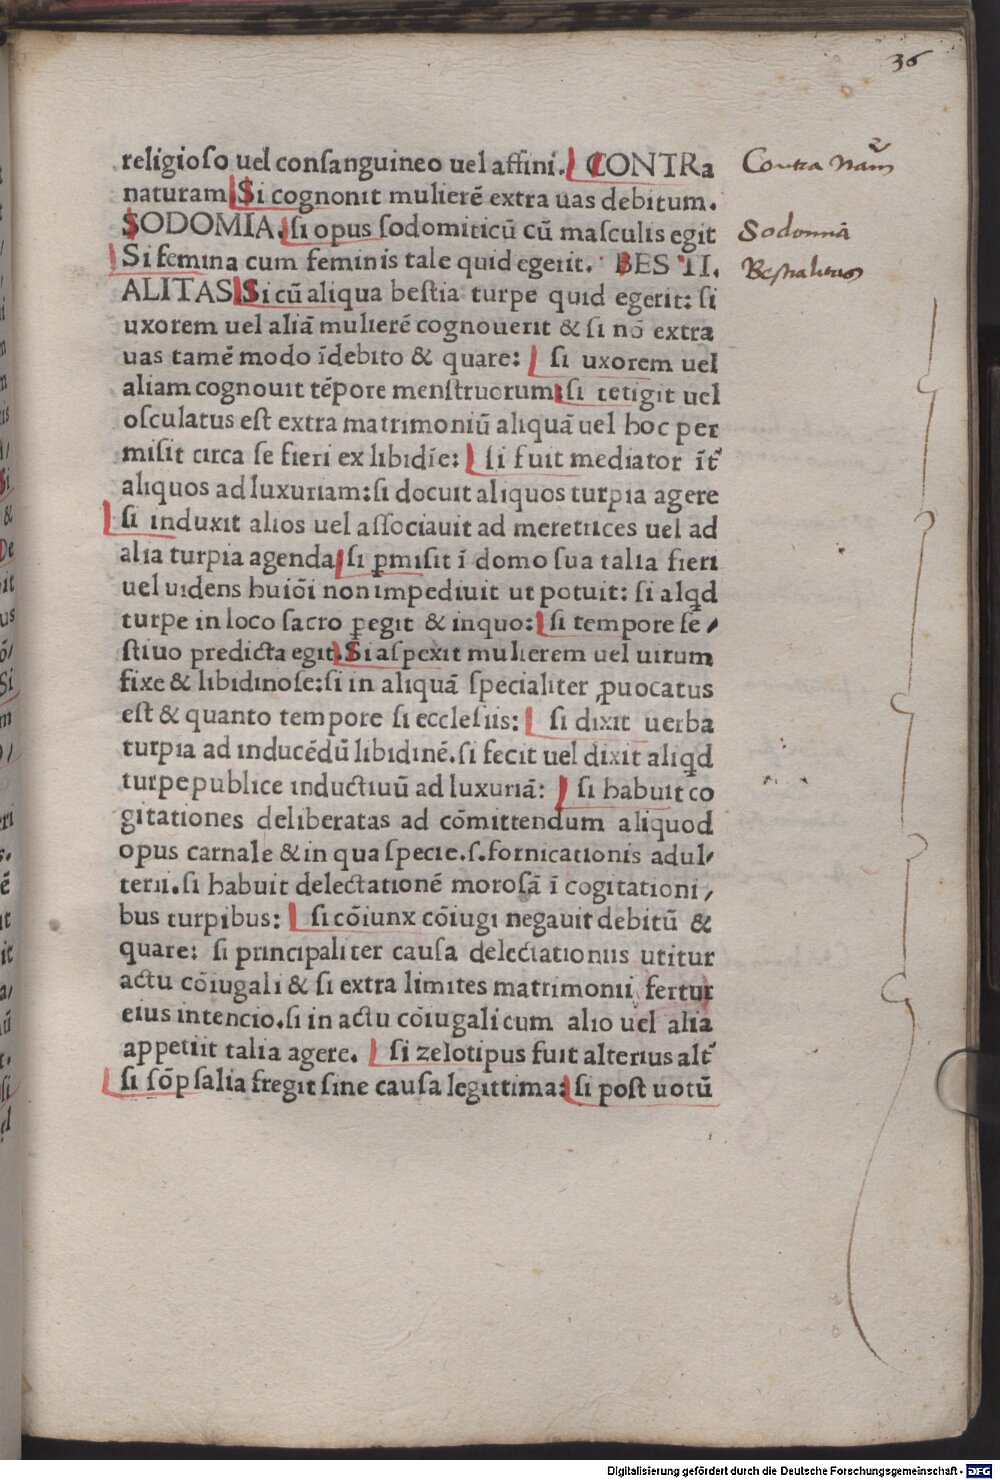 36
religioso uel consanguineo uel affini. CONTRa
naturam Si cognonit mulierē extra uas debitum.
SODOMIA. si opus sodomiticū cū masculis egit
Si femina cum feminis tale quid egerit. BESTI.
ALITAS. Si cū aliqua bestia turpe quid egerit: si
uxorem uel aliā mulierē cognouerit & si nō extra
uas tamē modo īdebito & quare: si uxorem uel
aliam cognouit tēpore menstruorum: si tetigit uel
osculatus est extra matrimoniū aliquā uel hoc per
misit circa se fieri ex libidīe: si fuit mediator īt᷑
aliquos ad luxuriam: si docuit aliquos turpia agere
si induxit alios uel associauit ad meretrices uel ad
alia turpia agenda si ꝑmisit ī domo sua talia fieri
uel uidens huiōi non impediuit ut potuit: si alqd
turpe in loco sacro ꝑegit & inquo: si tempore fe/
stiuo predicta egit. Si aspexit mulierem uel uirum
fixe & libidinose: si in aliquā specialiter ꝓuocatus
est & quanto tempore si ecclesiis: si dixit uerba
turpia ad inducēdū libidinē. si fecit uel dixit aliqd
turpe publice inductiuū ad luxuriā: si habuit co
gitationes deliberatas ad cōmittendum aliquod
opus carnale & in qua specie. s. fornicationis adul/
terii. si habuit delectationē morosā ī cogitationi/
bus turpibus: si cōiunx cōiugi negauit debitū &
quare: si principaliter causa delectationis utitur
actu cōiugali & si extra limites matrimonii fertur
eius intencio. si in actu cōiugali cum alio uel alia
appetiit talia agere. si zelotipus fuit alterius alt᷑
si sōpsalia fregit sine causa legittima: si post uotū
Contra nām
Sodomia
Bestialitas
Digitalisierung gefördert durch die Deutsche Forschungsgemeinschaft - DFG